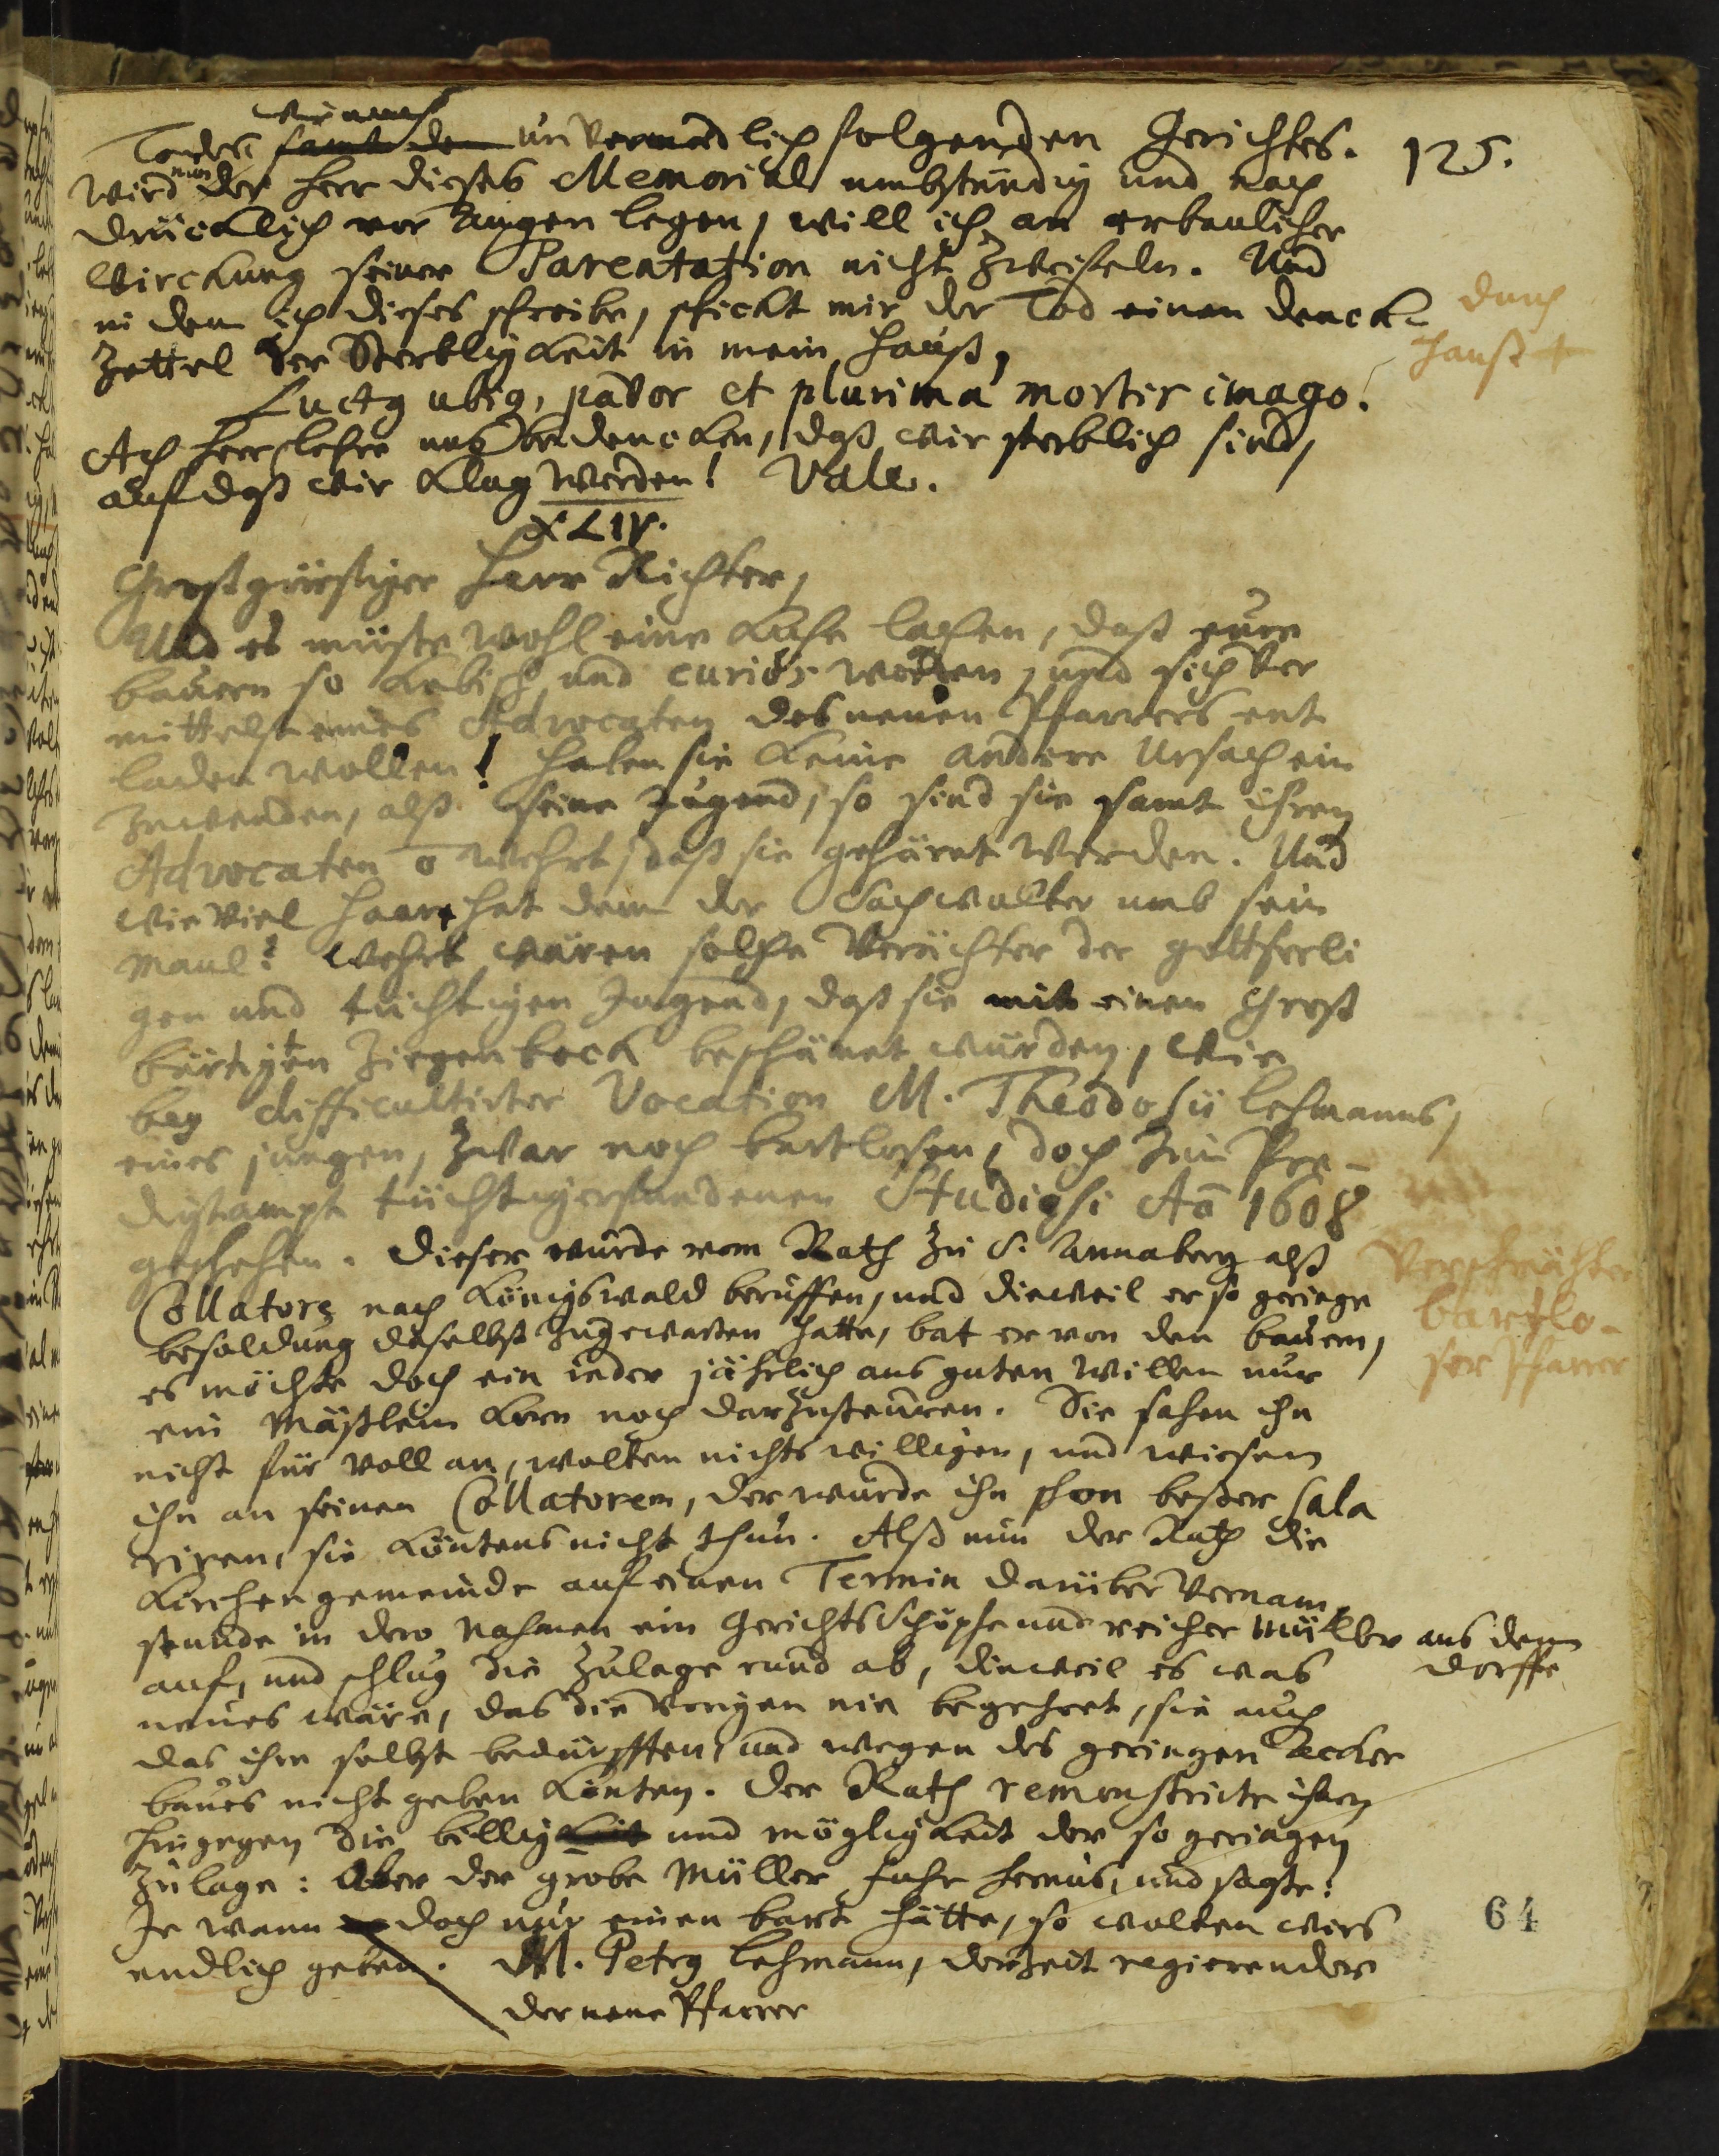 wie auch
Todes samt dem unvermeidlich folgenden Gerichtes. 125.
wird nun der Herr dieses Memorial umbständig und nach
drücklich vor Augen legen, will ich an erbaulicher
Wirckung seiner Parentation nicht zweifeln. Und
in dem ich dieses schreibe, schickt mir der Tod einen denck
Zettel der Sterbligkeit in mein Hauß,
Hauß
Luctg ubiq, pavor et plurima mortis imago.
Ach Herr lehre uns bedencken, daß wir sterblich sind,
auf daß wir klug werden! Vale.
XLIV.
Großgünstiger Herr Richter,
Und es müste wohl eine Kuhe lachen, daß eure
bauern so kebisch und curiös werden, und sich ver
mittelst eines Advocaten des neuen Pfarrers ent
laden wollen! Haben sie keine andere Ursach ein
zuwenden, alß seine Jugend, so sind sie samt ihren
Advocaten o wehrt, daß sie gehöret werden. Und
wie viel Haare hat denn der Sachwalter umb sein
Maul? Wehrt wären solche Verächter der gottseeli
gen und tüchtigen Jugend, daß sie mit einen Groß
bärtigten Ziegenbock beschämet würden, wie
bey difficultirter Vocation M. Theodosii Lehmanns,
eines jungen, zwar noch bartlosen, doch zum Pre-
digtampt tüchtigerfundenen Studiosi Aō 1608
geschehen. Dieser wurde vom Rath zu S. Annaberg alß
Verschmähter
bartlo-
ser Pfarrer
Collatore nach Königswald beruffen, und dieweil er so geringe
besoldung daselbst zugewarten hatte, bat er von den bauern,
es möchte doch ein ieder jährlich aus guten Willen nur
ein Mäßlein Korn noch darzusteuren. Die sahen ihn
nicht für voll an, wolten nichts willigen, und wiesen
ihn an seinen Collatorem, der wurde ihn schon beßer sala
riren, sie köntens nicht thun. Alß nun der Rath die
Kirchengemeinde auf einen Termin darüber vernam,
stunde in dero Nahmen ein Gerichts Schöpfe und reicher Müller aus dem
Dorffe
auf, und schlug die Zulage rund ab, dieweil es was
neues wäre, das die vorigen nie begehret, sie auch
das ihre selbst bedürfften, und wegen des geringen Acker
baues nicht geben könten. Der Rath remonstrirte ihnen
hingegen die billigkeit und mögligkeit der so geringen
Zulage: Aber der grobe Müller fuhr heraus, und sagte:
Je wann doch nur einen bart hätte, so wolten wirs
64
endlich geben. M. Petrg Lehmann, derzeit regierender
der neue Pfarrer